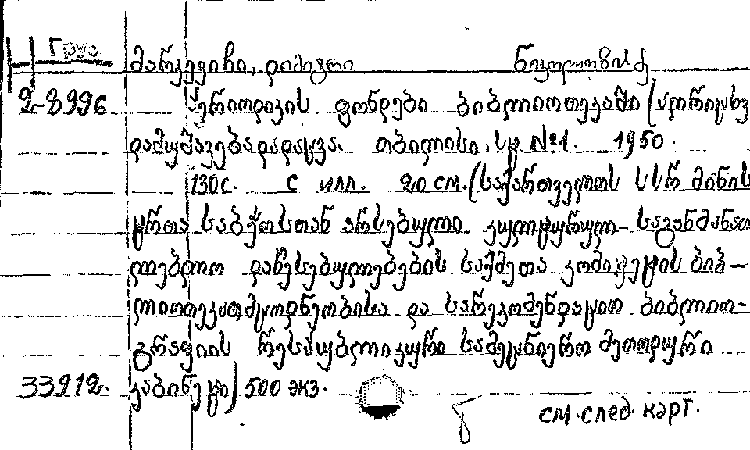 Груз.
მარკევიჩი, დიმიტრი ნიკოლოზის ძე
2-8996 პერიოდიკის ფონდები ბიბლიოთეკაში (აღრიცხვ
დამუშავება დადაცვა. თბილისი, სტ №1. 1950.
130с. с илл. 20 см. (საქართველოს სსრ მინის
ტრთა საბჭოსთან არსებული კულტურულ-საგანმანათ
ლებლო დაწესებულებების საქმეთა კომიტეტის ბიბ-
ლიოთეკათმცოდნეობისა და სარეკომენდაციო ბიბლიო-
გრაფიის რესპუბლიკური სამეცნიერო მეთოდური
33212. კაბინეტი) 500 экз.
см. след. карт.